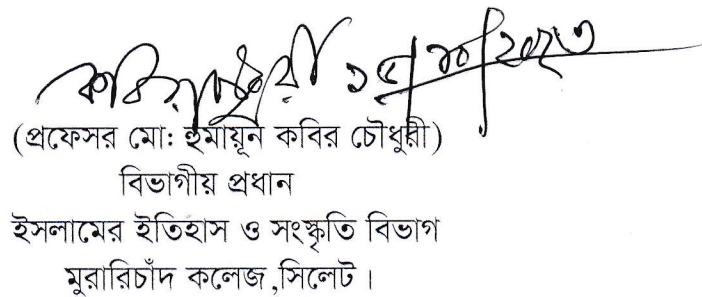 ১৫/১০/২০২৩
(প্রফেসর মো: হুমায়ূন কবির চৌধুরী)
বিভাগীয় প্রধান
ইসলামের ইতিহাস ও সংস্কৃতি বিভাগ
মুরারিচাঁদ কলেজ,সিলেট।